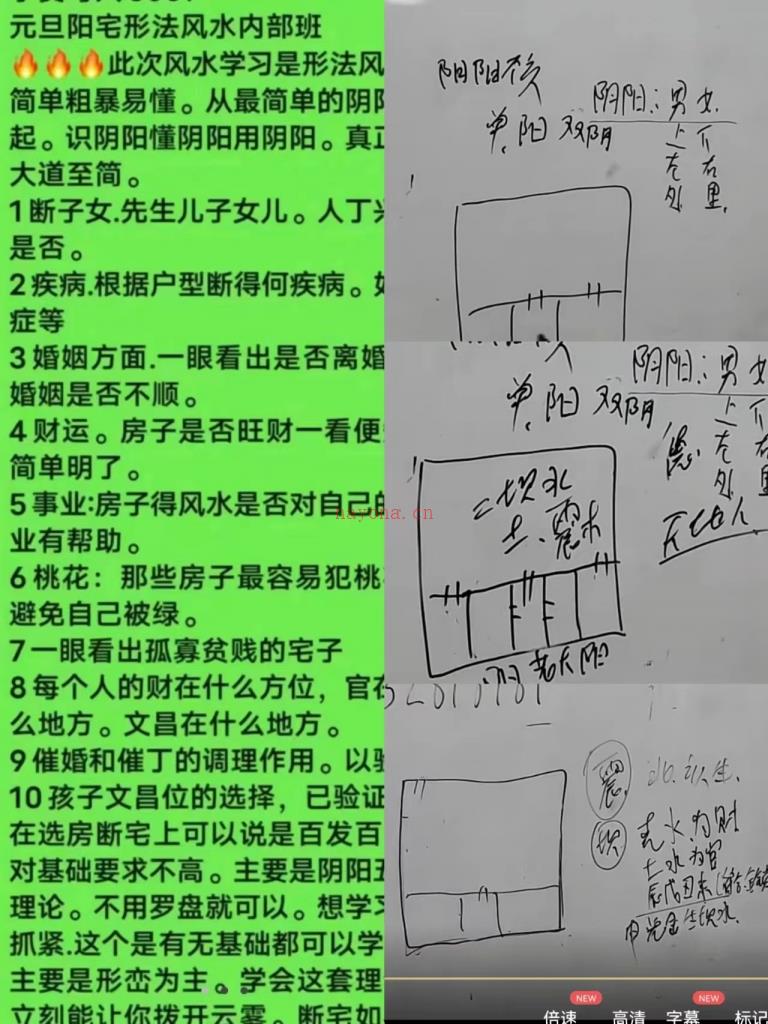 元旦阳宅形法风水内部班
🔥🔥🔥此次风水学习是形法风
简单粗暴易懂。从最简单的阴阳
起。识阴阳懂阴阳用阴阳。真正
大道至简。
1断子女.先生儿子女儿。人丁兴
是否。
2疾病.根据户型断得何疾病。如
症等
3婚姻方面.一眼看出是否离婚
婚姻是否不顺。
4财运。房子是否旺财一看便
简单明了。
5事业:房子得风水是否对自己的
业有帮助。
6桃花：那些房子最容易犯桃花
避免自己被绿。
7一眼看出孤寡贫贱的宅子
8每个人的财在什么方位，官在
么地方。文昌在什么地方。
9催婚和催丁的调理作用。以验
10孩子文昌位的选择，已验证
在选房断宅上可以说是百发百
对基础要求不高。主要是阴阳五
理论。不用罗盘就可以。想学习
抓紧.这个是有无基础都可以学
主要是形峦为主。学会这套理
立刻能让你拨开云雾。断宅如
阴阳:男女
单.阳 双阴
上下
左右
外里
阴阳:男女
单.阳 双阴
上下
左右
外里
二坎水
土.震木
nayona.cn
震
坎
为财
土水为官
NEW
NEW
倍速
高清
字幕
标记